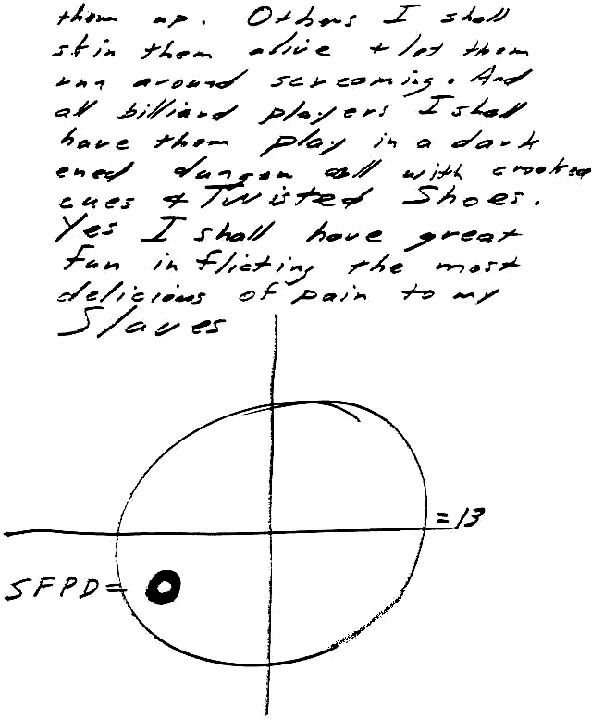 them up. Others I shall
skin them alive + let them
run around screaming. And
all billiard players I shall
have them play in a dark
ened dungen cell with crooked
cues & Twisted Shoes.
Yes I shall have great
fun in flicting the most
delicious of pain to my
Slaves
= 13
SFPD =